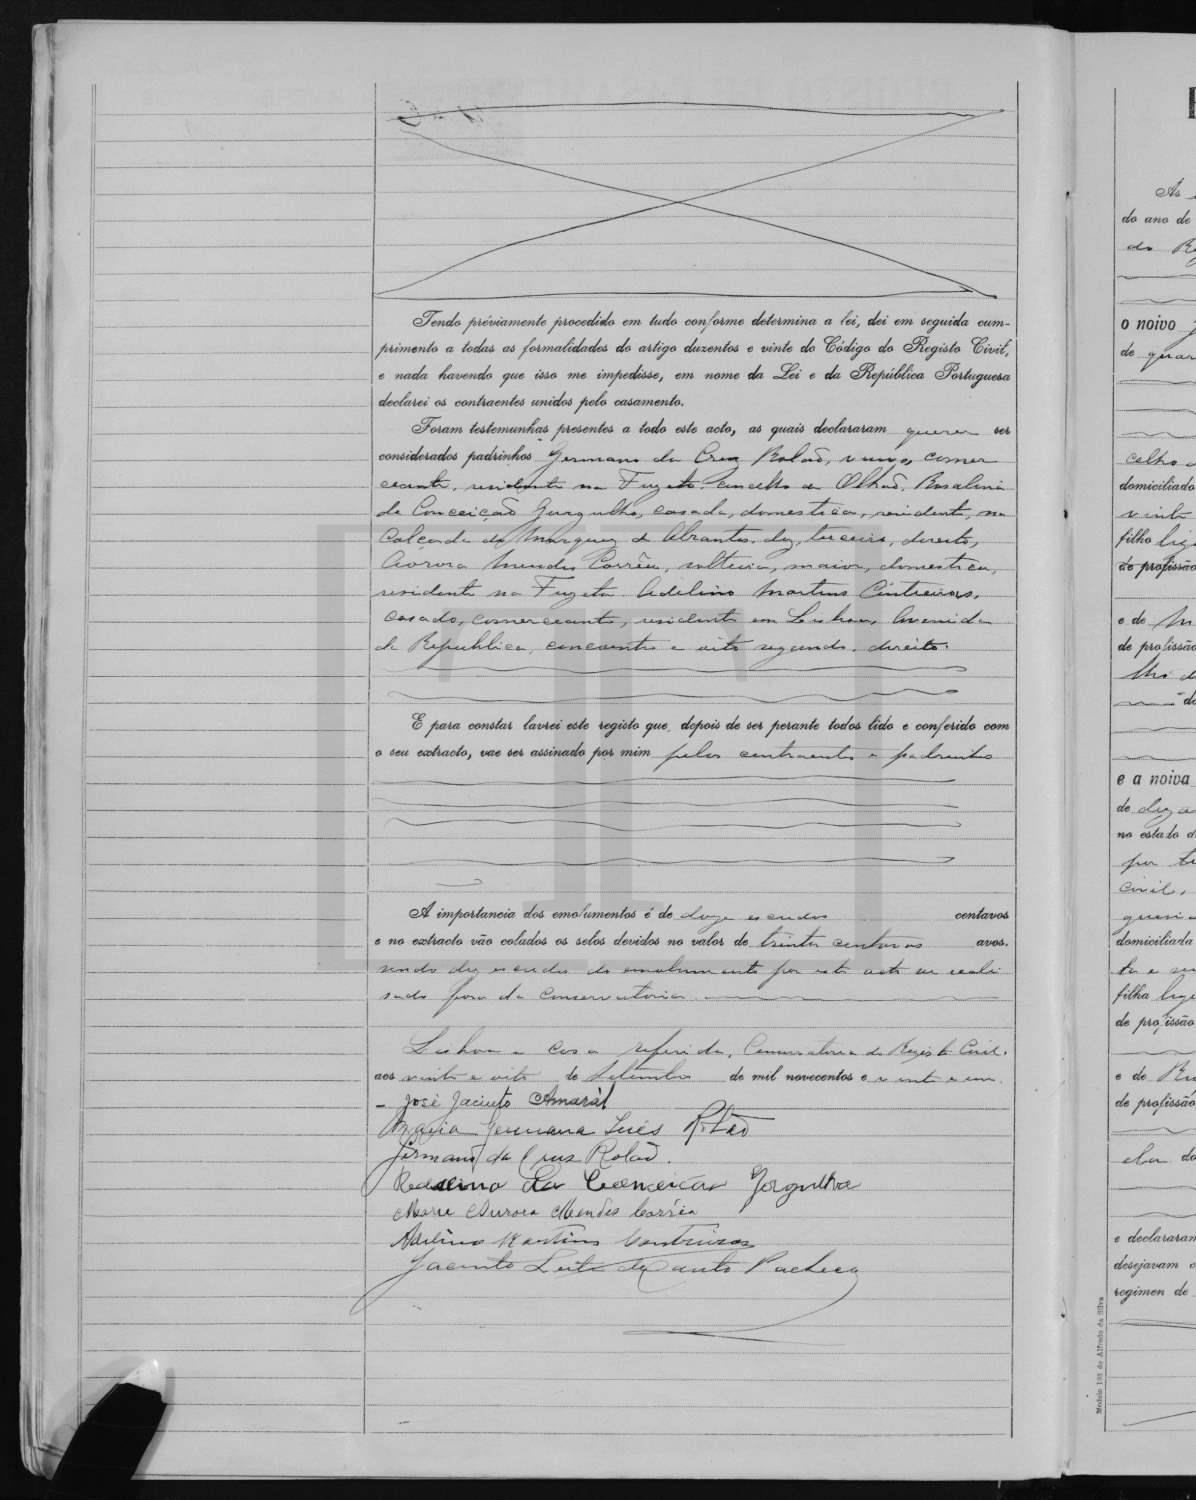 Tendo préviamente procedido em tudo conforme determina a lei, dei em seguida cum-
primento a todas as formalidades do artigo duzentos e vinte do Código do Registo Civil,
e nada havendo que isso me impedisse, em nome da Lei e da República Portuguesa
declarei os contraentes unidos pelo casamento.
Foram testemunhas presentes a todo este acto, as quais declararam querer ser
considerados padrinhos Germano da Cruz Rolaõ, viuvo, comer
ceante, residente na Fuzeta, concelho de Olhaõ, Rosalina
da Conceiçaõ Gorgulho, casada, domestica, residente, na
Calçada do Marquez de Abrantes, dez, terceiro, direito,
Aurora Mendes Corrêa, solteira, maior, domestica,
residente na Fuzeta. Adelino Martins Contreiras,
casado, comerceante, residente em Lisboa, Avenida
da Republica, cincoenta e oito segundo, direito.
E para constar lavrei este registo que, depois de ser perante todos lido e conferido com
o seu extracto, vae ser assinado por mim pelos contraentes e padrinhos
A importancia dos emolumentos é de doze escudos centavos
e no extracto vão colados os selos devidos no valor de trinta centavos avos.
sendo dez escudos de emolumento por este acto ser reali
sado fora da Conservatoria
Lisboa e casa referida, Conservatoria do Registo Civil.
aos vinte e oito de Setembro de mil novecentos e vinte e um.
José Jacinto Amaral
Maria Germana Inês Rolão
Germano da Cruz Rolaõ.
da Conceicão Gorgulho
Maria Aurora Mendes Corrêa
Adelino Martins Contreiras
Jacinto Leite do Canto Pacheco
As
do ano de
do
o noivo
de
domiciliado
vinte
filho
de profissão
e de
de profissão
e a noiva
de
no estado
por
Civil,
domiciliada
filha
de profissão
e de
de profissão
e declararam
desejavam
regimen de
Modelo 103 de Alfredo da Silva